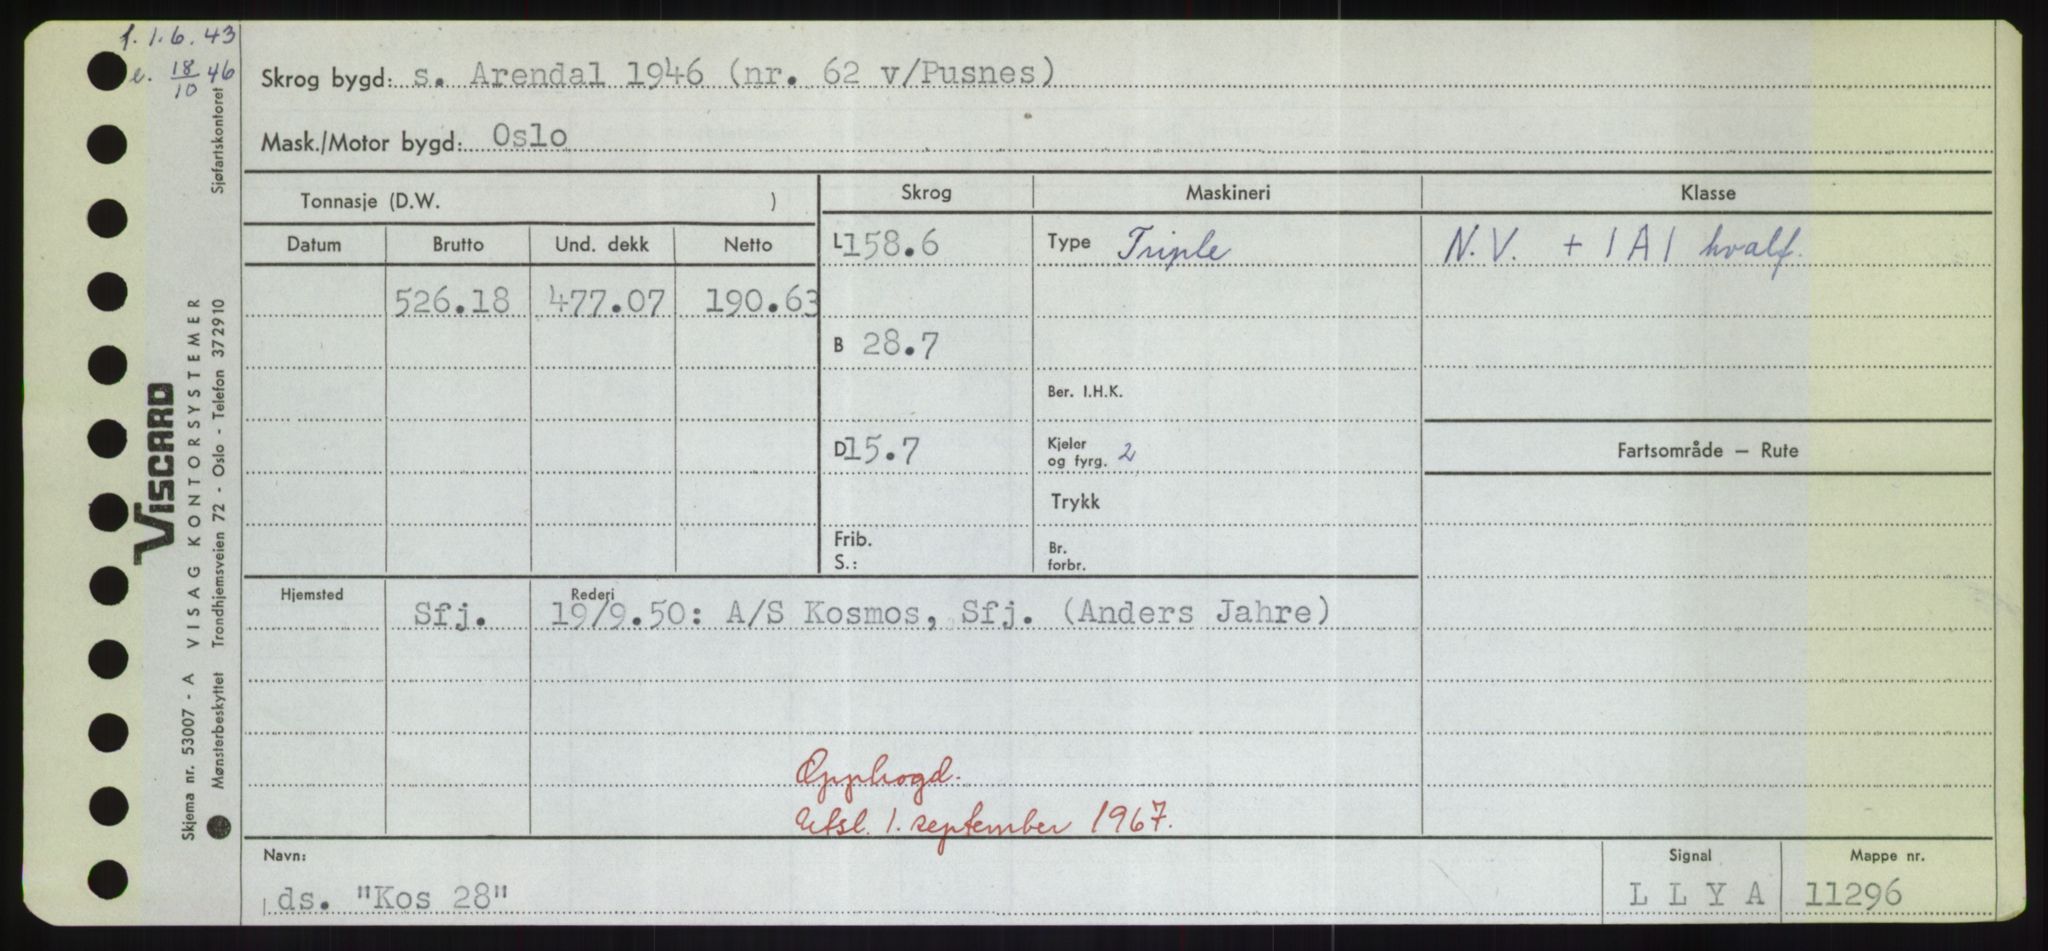 f. 1.6.43
e. 18/10 46
Skrog bygd: s. Arendal 1946 (nr. 62 v/Pusnes)
Mask./Motor bygd: Oslo
Tonnasje (D.W. )
Skrog Maskineri Klasse
Datum Brutto Und. dekk Netto
L 158.6 Type Triple N.V. + 1A1 hvalf.
526.18 477.07 190.63
B 28.7
Ber. I.H.K.
D 15.7 Kjeler og fyrg. 2 Fartsområde – Rute
Trykk
Frib.
S.:
Br. forbr.
Hjemsted Rederi
Sfj. 19/9.50: A/S Kosmos, Sfj. (Anders Jahre)
Opphogd.
Utsl. 1. september 1967.
Navn: Signal Mappe nr.
ds. "Kos 28" L L Y A 11296
VISCARD
Skjema nr. 53007 - A VISAG KONTORSYSTEMER
Mønsterbeskyttet Trondhjemsveien 72 - Oslo - Telefon 372910
Sjøfartskontoret